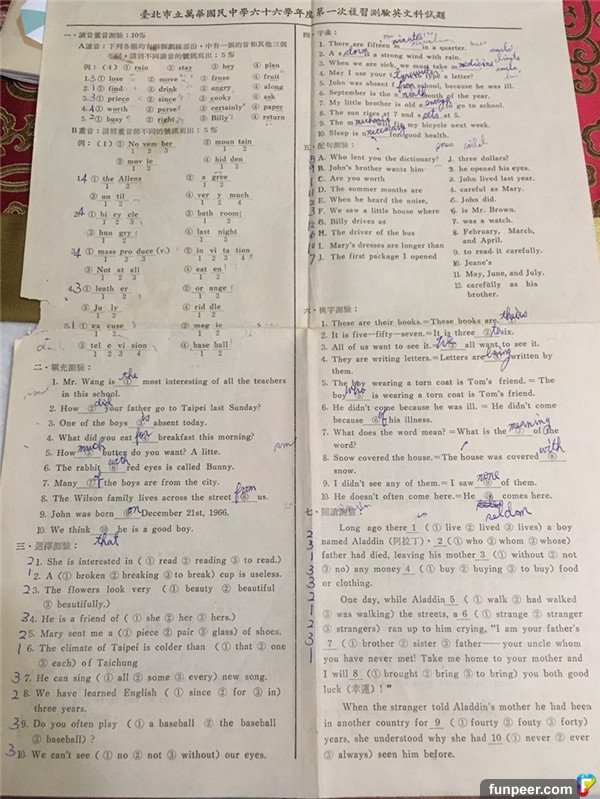 臺北市立萬華國民中學六十六學年度第一次複習測驗英文科試題
一、讀音重音測驗：10%
A讀音：下列各題均有四個劃線部份，中有一個的音和其他三個
不同，請將不同讀音的號碼寫出：5％
例：（4）① rain ② stay ③ hey ④ plan
1. ① lose ② move ③ froze ④ fruit
2. ① find ② drink ③ angry ④ along
3. ① piece ② since ③ cooky ④ ask
4. ① worth ② purse ③ certainly ④ paper
5. ① busy ② right ③ Billy ④ return
B重音：請將重音節不同的號碼寫出：5％
例：（1）① No vem ber ② moun tain
1 2 3 1 2
③ mov ie ④ hid den
1 2 1 2
1. 4 ① the Allens ② a gree
③ un til ④ ver y much
2. 4 ① bi cy cle ② bath room
③ hun gry ④ last night
3. 4 ① mass pro duce (v.) ② in vi ta tion
③ Not at all ④ eat en
4. 3 ① leath er ② or ange
③ Ju ly ④ rid dle
5. ① ex cuse ② mag ic
③ tele vi sion ④ base ball
二、填充測驗：
1. Mr. Wang is the ① most interesting of all the teachers
in this school.
2. How did ② your father go to Taipei last Sunday?
3. One of the boys is ③ absent today.
4. What did you eat for ④ breakfast this morning?
5. How much ⑤ butter do you want? A litte.
6. The rabbit with ⑥ red eyes is called Bunny.
7. Many of ⑦ the boys are from the city.
8. The Wilson family lives across the street from ⑧ us.
9. John was born on ⑨ December 21st, 1966.
10. We think ⑩ he is a good boy.
that
三、選擇測驗：
2 1. She is interested in (① read ② reading ③ to read.)
1 2. A (① broken ② breaking ③ to break) cup is useless.
2 3. The flowers look very (① beauty ② beautiful
③ beautifully.)
3 4. He is a friend of (① she ② her ③ hers.)
2 5. Mary sent me a (① piece ② pair ③ glass) of shoes.
1 6. The climate of Taipei is colder than (① that ② one
③ each) of Taichung
3 7. He can sing (① all ② some ③ every) new song.
2 8. We have learned English (① since ② for ③ in)
three years.
3 9. Do you often play (① a baseball ② the baseball
③ baseball)?
3 10. We can't see (① no ② not ③ without) our eyes.
四、字彙：
1. There are fifteen minutes in a quarter.
2. A storm is a strong wind with rain.
3. When we are sick, we must take medicine
4. May I use your typewriter to type a letter?
5. John was absent from school, because he was ill.
6. September is the ninth month of the year.
7. My little brother is old enough to go to school.
8. The sun rises at 7 and sets at 5.
9. The mechanic will my bicycle next week.
10. Sleep is necessary for good health.
五、配句測驗：
A. Who lent you the dictionary? 1. three dollars?
B. John's brother wants him 2. he opened his eyes.
C. Are you worth 3. John lived last year.
D. The summer months are 4. careful as Mary.
E. When he heard the noise, 5. John did.
F. We saw a little house where 6. is Mr. Brown.
G. Billy drives as 7. was a watch.
H. The driver of the bus 8. February, March,
and April.
I. Mary's dresses are longer than 9. to read it carefully.
J. The first package I opened 10. Jeane's
11. May, June, and July.
12. carefully as his
brother.
六、填字測驗：
1. These are their books.＝These books are theirs
2. It is five－fifty－seven.＝It is three ② to six.
3. All of us want to see it. We ③ all want to see it.
4. They are writing letters.＝Letters are being ④ written by
them.
5. The boy wearing a torn coat is Tom's friend. ＝ The
boy who ⑤ is wearing a torn coat is Tom's friend.
6. He didn't come because he was ill. ＝ He didn't come
because of ⑥ his illness.
7. What does the word mean? ＝What is the meaning ⑦ of the
word?
8. Snow covered the house.＝The house was covered with ⑧
snow.
9. I didn't see any of them.＝I saw none ⑨ of them.
10. He doesn't often come here.＝He ⑩ comes here.
seldom
七、閱讀測驗：
Long ago there 1 (① live ② lived ③ lives) a boy
named Aladdin (阿拉丁), 2 (① who ② whom ③ whose)
father had died, leaving his mother 3 (① without ② not
③ no) any money 4 (① buy ② buying ③ to buy) food
or clothing.
One day, while Aladdin 5 (① walk ② had walked
③ was walking) the streets, a 6 (① strange ② stranger
③ strangers) ran up to him crying, "I am your father's
7 (① brother ② sister ③ father——your uncle whom
you have never met! Take me home to your mother and
I will 8 (① brought ② bring ③ to bring) you both good
luck (幸運)！"
When the stranger told Aladdin's mother he had been
in another country for 9 (① fourty ② fouty ③ forty)
years, she understood why she had 10 (① never ② ever
③ always) seen him before.
funpeer.com